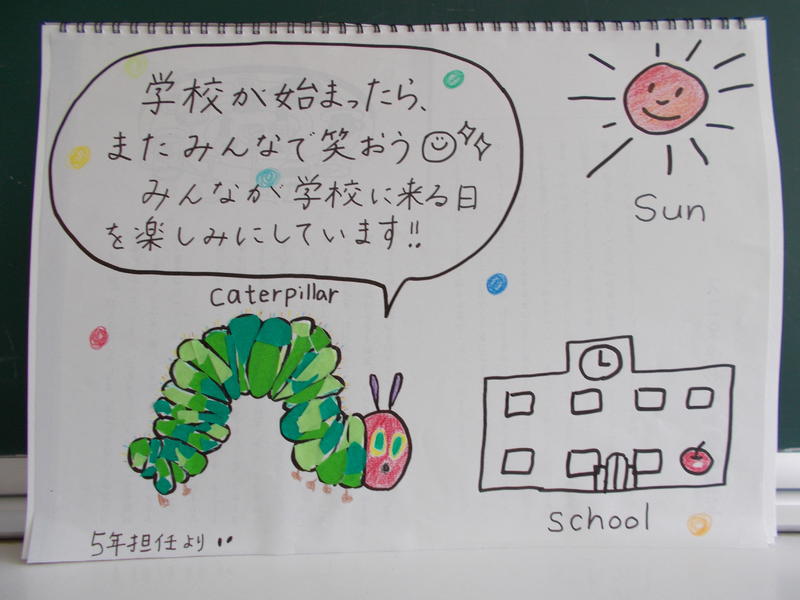 学校が始まったら、
またみんなで笑おう
みんなが学校に来る日
を楽しみにしています!!
Sun
caterpillar
school
5年担任より